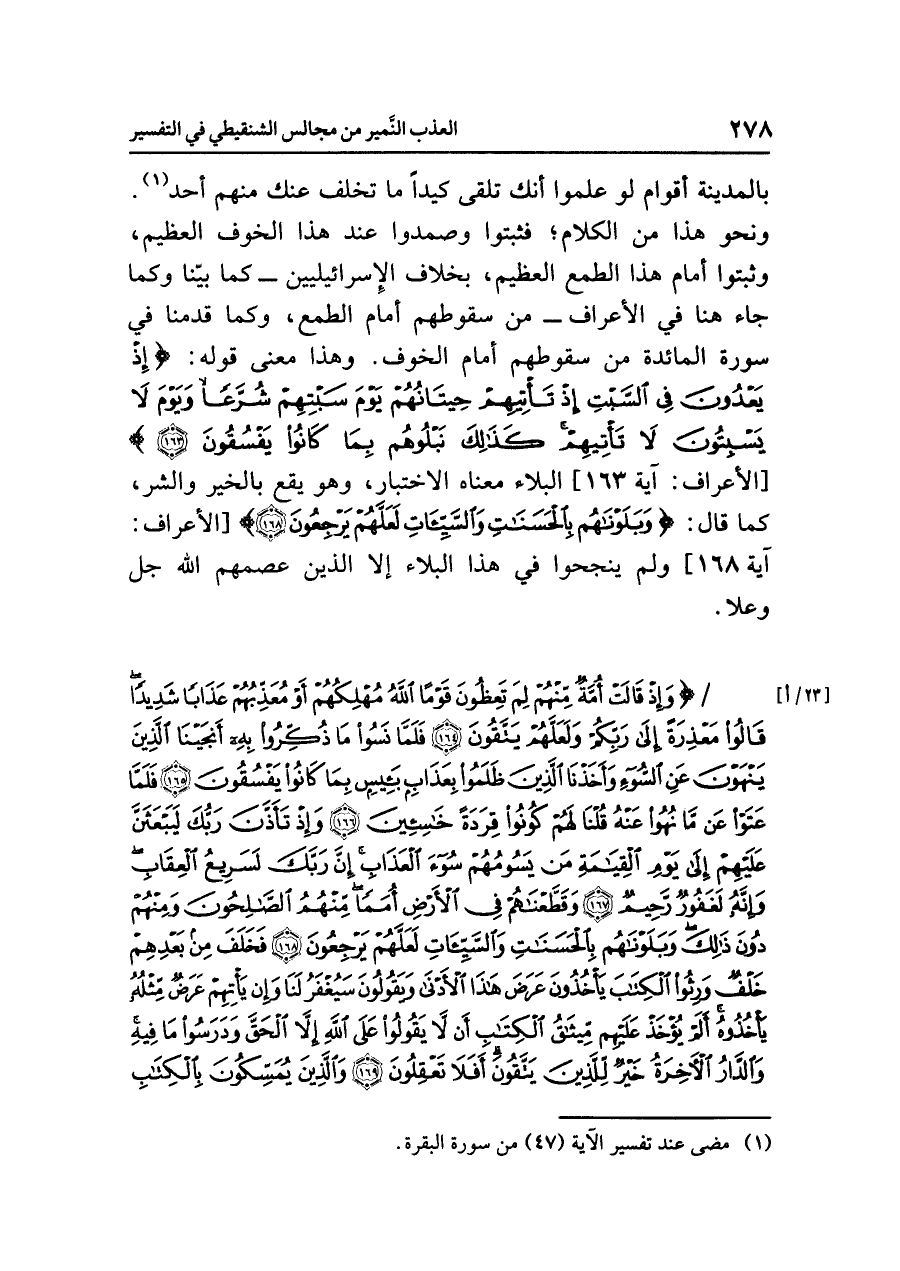 ٢٧٨ العذب النَّمير من مجالس الشنقيطي في التفسير
بالمدينة أقوام لو علموا أنك تلقى كيداً ما تخلف عنك منهم أحد(١).
ونحو هذا من الكلام؛ فثبتوا وصمدوا عند هذا الخوف العظيم،
وثبتوا أمام هذا الطمع العظيم، بخلاف الإسرائيليين ــ كما بيّنا وكما
جاء هنا في الأعراف ــ من سقوطهم أمام الطمع، وكما قدمنا في
سورة المائدة من سقوطهم أمام الخوف. وهذا معنى قوله: ﴿ إِذْ
يَعْدُونَ فِي ٱلسَّبْتِ إِذْ تَأْتِيهِمْ حِيتَانُهُمْ يَوْمَ سَبْتِهِمْ شُرَّعًا ۙ وَيَوْمَ لَا
يَسْبِتُونَ لَا تَأْتِيهِمْ ۚ كَذَٰلِكَ نَبْلُوهُم بِمَا كَانُوا۟ يَفْسُقُونَ ١٦٣ ﴾
[الأعراف: آية ١٦٣] البلاء معناه الاختبار، وهو يقع بالخير والشر،
كما قال: ﴿ وَبَلَوْنَٰهُم بِٱلْحَسَنَٰتِ وَٱلسَّيِّـَٔاتِ لَعَلَّهُمْ يَرْجِعُونَ ١٦٨ ﴾ [الأعراف:
آية ١٦٨] ولم ينجحوا في هذا البلاء إلا الذين عصمهم الله جل
وعلا.
[٢٣/أ] / ﴿ وَإِذْ قَالَتْ أُمَّةٌ مِّنْهُمْ لِمَ تَعِظُونَ قَوْمًا ٱللَّهُ مُهْلِكُهُمْ أَوْ مُعَذِّبُهُمْ عَذَابًا شَدِيدًا ۖ
قَالُوا۟ مَعْذِرَةً إِلَىٰ رَبِّكُمْ وَلَعَلَّهُمْ يَتَّقُونَ ١٦٤ فَلَمَّا نَسُوا۟ مَا ذُكِّرُوا۟ بِهِۦٓ أَنجَيْنَا ٱلَّذِينَ
يَنْهَوْنَ عَنِ ٱلسُّوٓءِ وَأَخَذْنَا ٱلَّذِينَ ظَلَمُوا۟ بِعَذَابٍۭ بَـِٔيسٍۭ بِمَا كَانُوا۟ يَفْسُقُونَ ١٦٥ فَلَمَّا
عَتَوْا۟ عَن مَّا نُهُوا۟ عَنْهُ قُلْنَا لَهُمْ كُونُوا۟ قِرَدَةً خَٰسِـِٔينَ ١٦٦ وَإِذْ تَأَذَّنَ رَبُّكَ لَيَبْعَثَنَّ
عَلَيْهِمْ إِلَىٰ يَوْمِ ٱلْقِيَٰمَةِ مَن يَسُومُهُمْ سُوٓءَ ٱلْعَذَابِ ۗ إِنَّ رَبَّكَ لَسَرِيعُ ٱلْعِقَابِ ۖ
وَإِنَّهُۥ لَغَفُورٌ رَّحِيمٌ ١٦٧ وَقَطَّعْنَٰهُمْ فِي ٱلْأَرْضِ أُمَمًا ۖ مِّنْهُمُ ٱلصَّٰلِحُونَ وَمِنْهُمْ
دُونَ ذَٰلِكَ ۖ وَبَلَوْنَٰهُم بِٱلْحَسَنَٰتِ وَٱلسَّيِّـَٔاتِ لَعَلَّهُمْ يَرْجِعُونَ ١٦٨ فَخَلَفَ مِنۢ بَعْدِهِمْ
خَلْفٌ وَرِثُوا۟ ٱلْكِتَٰبَ يَأْخُذُونَ عَرَضَ هَٰذَا ٱلْأَدْنَىٰ وَيَقُولُونَ سَيُغْفَرُ لَنَا وَإِن يَأْتِهِمْ عَرَضٌ مِّثْلُهُۥ
يَأْخُذُوهُ ۚ أَلَمْ يُؤْخَذْ عَلَيْهِم مِّيثَٰقُ ٱلْكِتَٰبِ أَن لَّا يَقُولُوا۟ عَلَى ٱللَّهِ إِلَّا ٱلْحَقَّ وَدَرَسُوا۟ مَا فِيهِ ۗ
وَٱلدَّارُ ٱلْـَٔاخِرَةُ خَيْرٌ لِّلَّذِينَ يَتَّقُونَ ۗ أَفَلَا تَعْقِلُونَ ١٦٩ وَٱلَّذِينَ يُمَسِّكُونَ بِٱلْكِتَٰبِ
(١) مضى عند تفسير الآية (٤٧) من سورة البقرة.